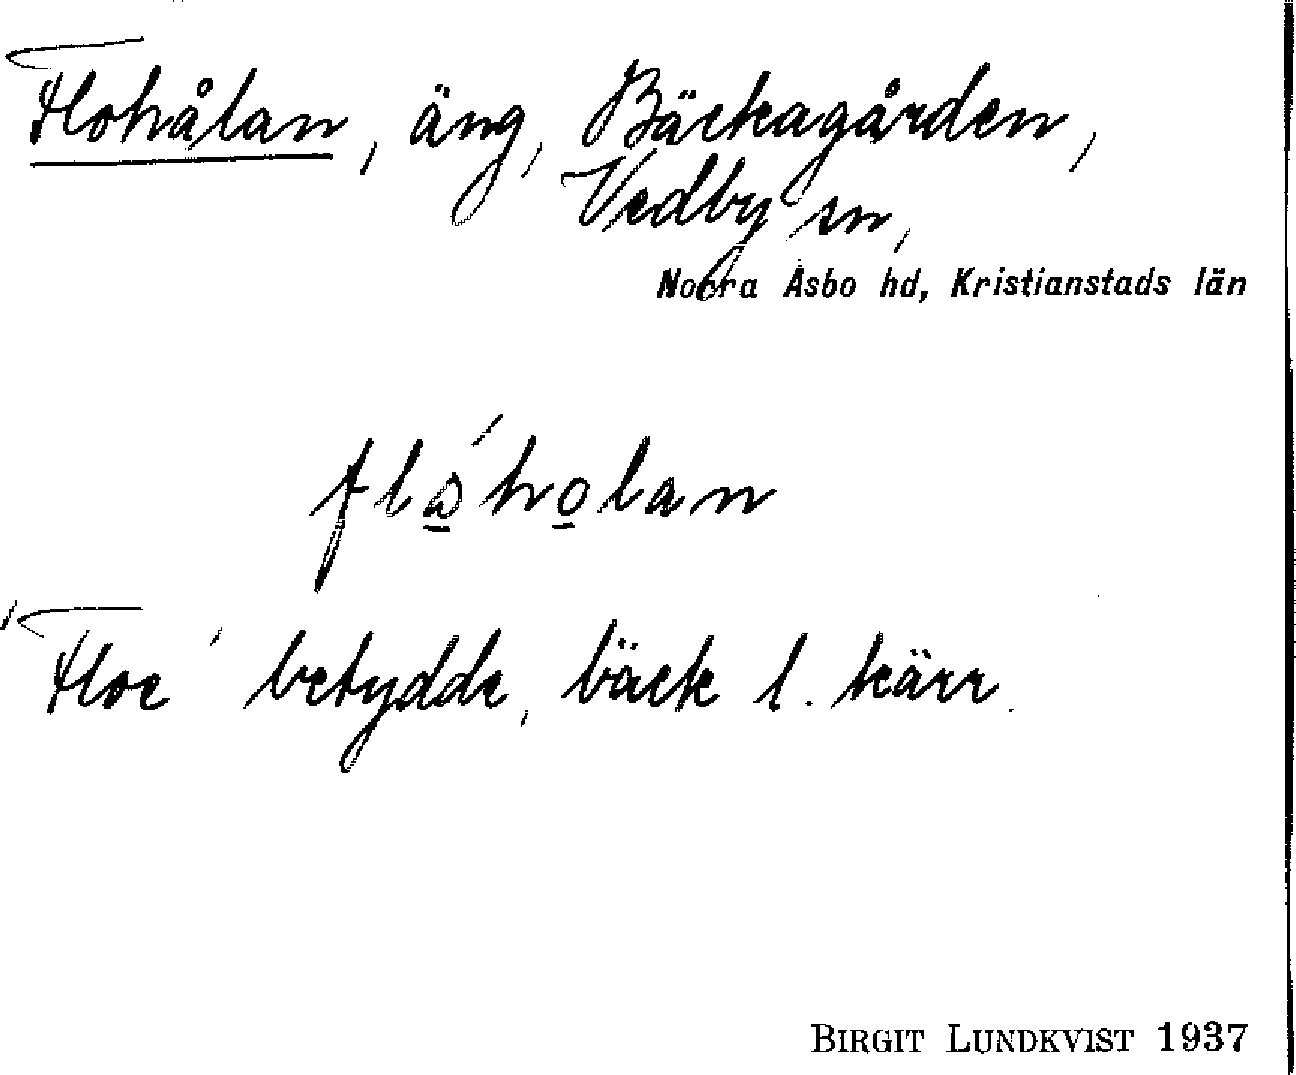 Flohålan, äng, Bäckagården,
Vedby sn,
Norra Åsbo hd, Kristianstads län
flo̲´ho̲lan
"Floe" betydde, bäck l. kärr.
BIRGIT LUNDKVIST 1937